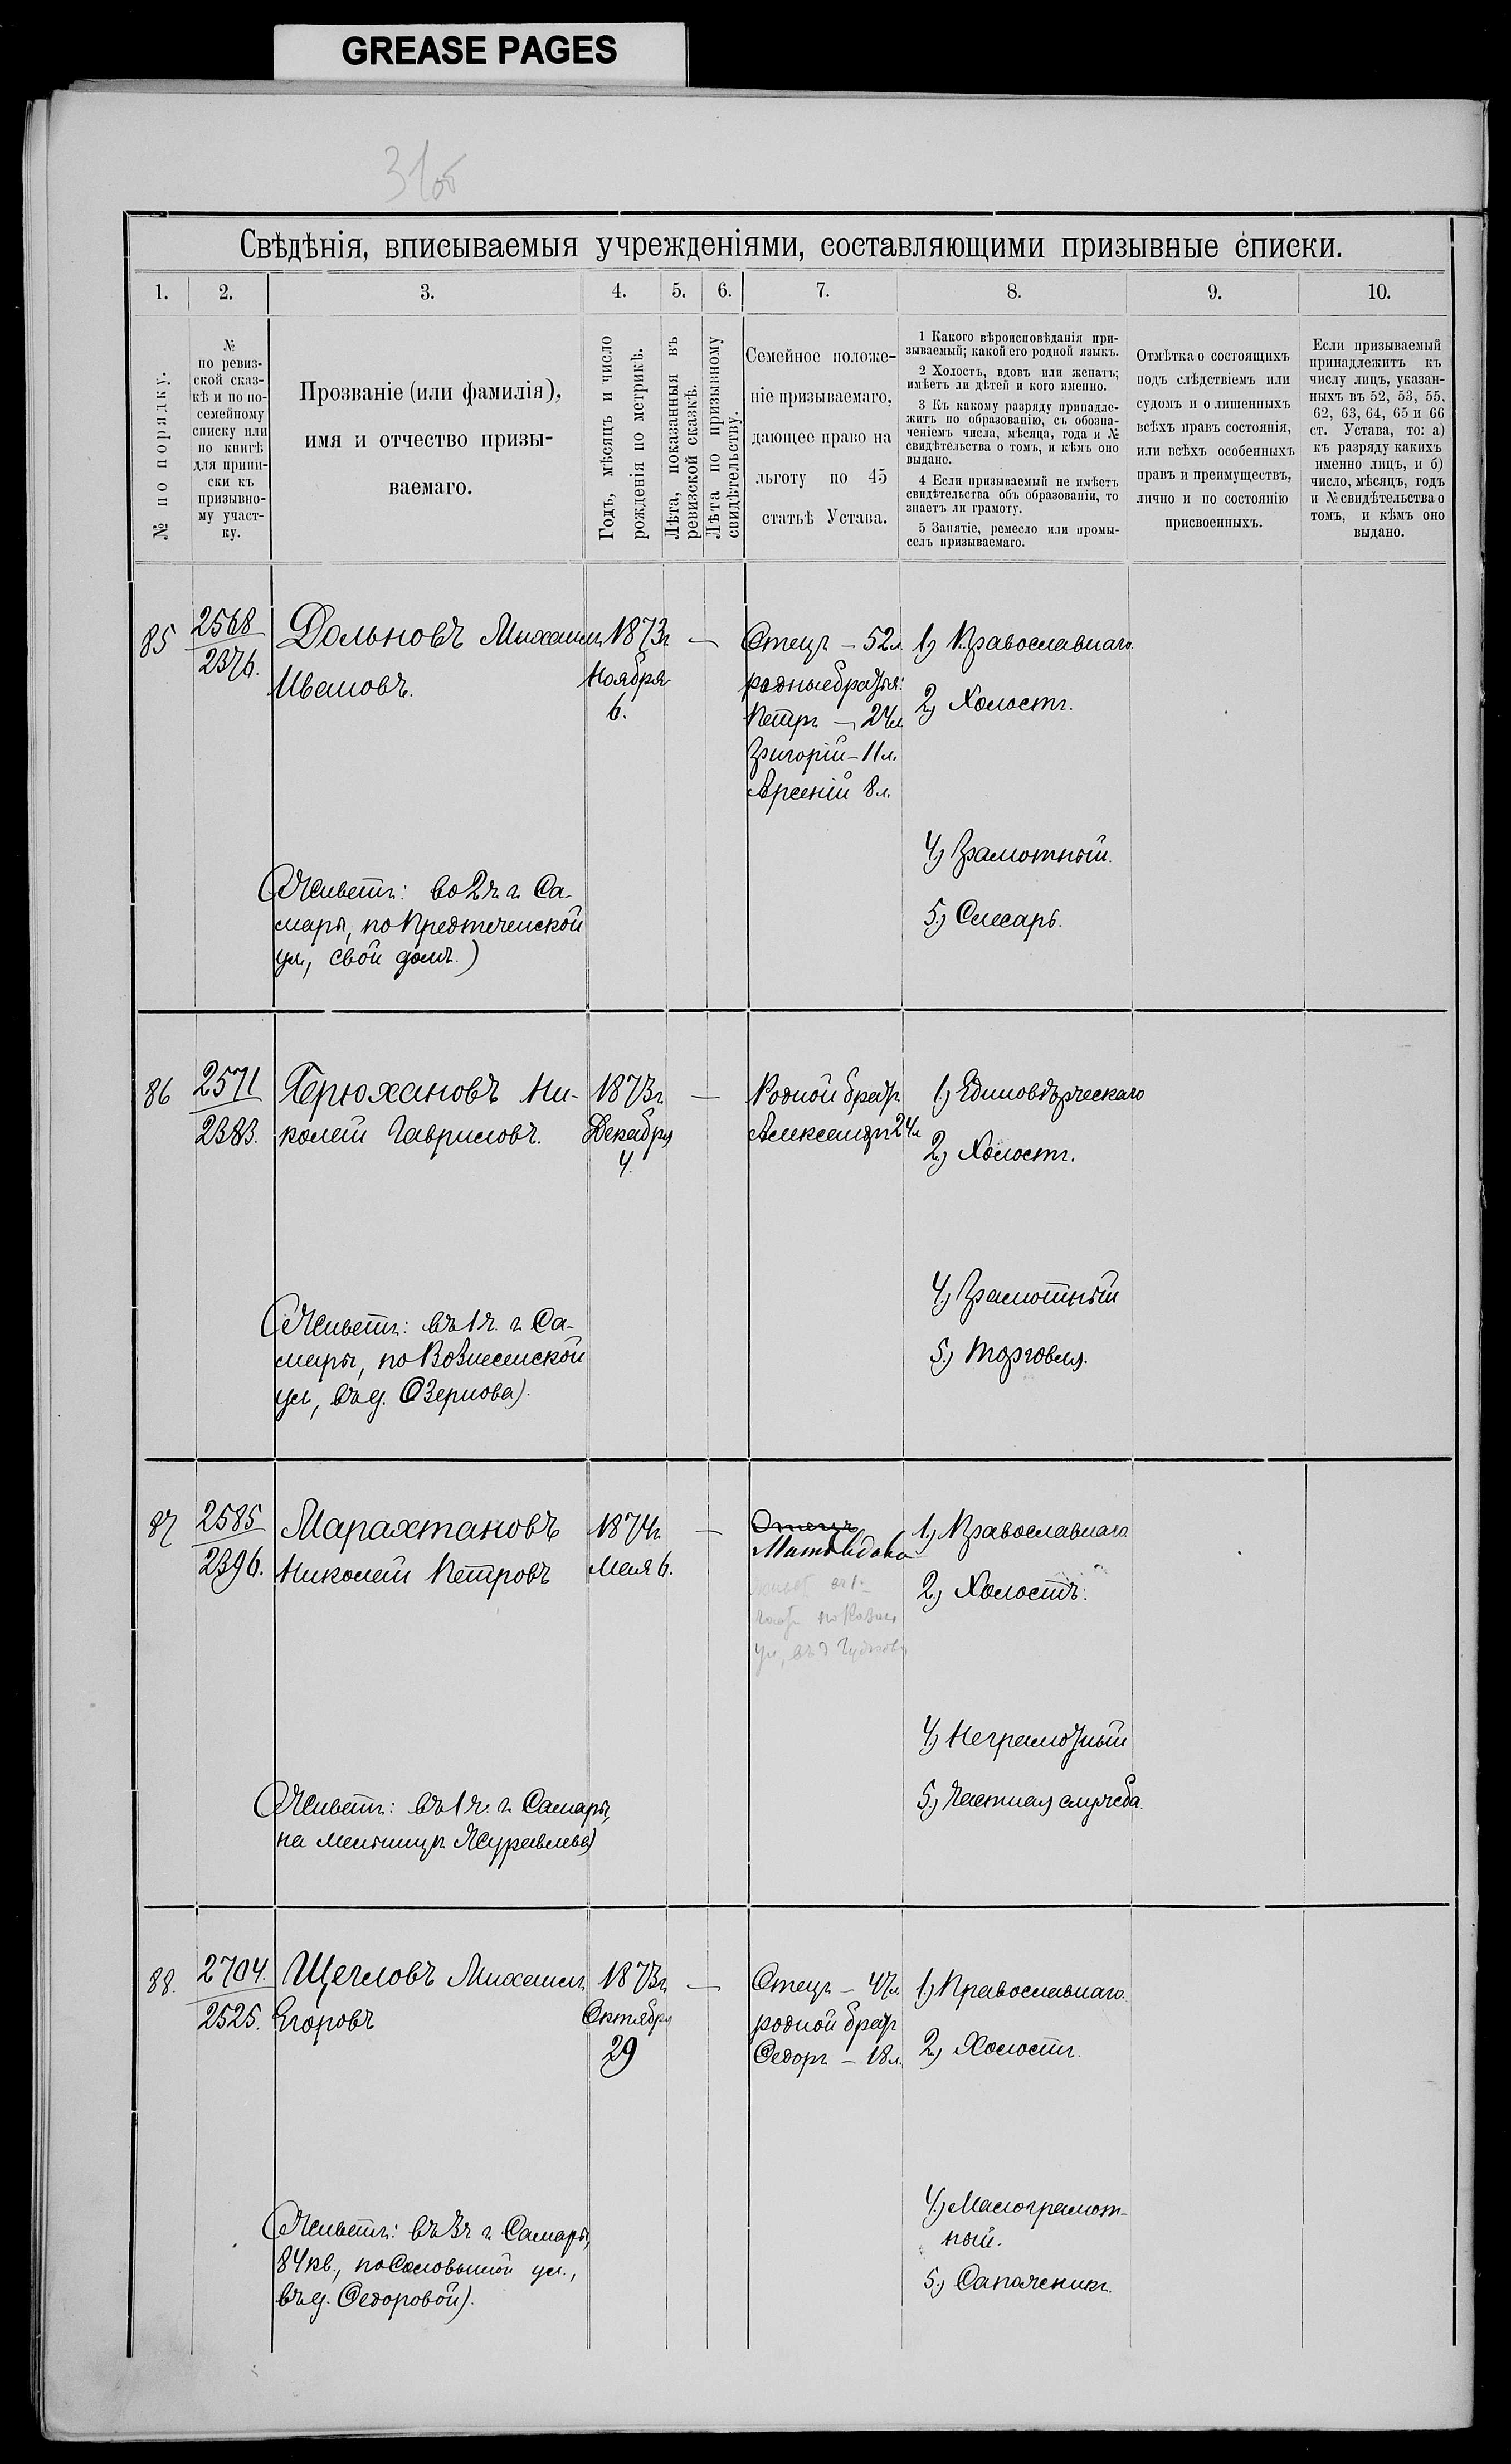 GREASE PAGES
31об
Свѣдѣнія, вписываемыя учрежденіями, составляющими призывные списки.
1. 2. 3. 4. 5. 6. 7. 8. 9. 10.
№ по порядку.
№
по ревиз-
ской сказ-
кѣ и по по-
семейному
списку или
по книгѣ
для припи-
ски къ
призывно-
му участ-
ку.
Прозваніе (или фамилія),
имя и отчество призы-
ваемаго.
Годъ, мѣсяцъ и число
рожденія по метрикѣ.
Лѣта, показанныя въ
ревизской сказкѣ.
Лѣта по призывному
свидѣтельству.
Семейное положе-
ніе призываемаго,
дающее право на
льготу по 45
статьѣ Устава.
1 Какого вѣроисповѣданія при-
зываемый; какой его родной языкъ.
2 Холостъ, вдовъ или женатъ;
имѣетъ ли дѣтей и кого именно.
3 Къ какому разряду принадле-
житъ по образованію, съ обозна-
ченіемъ числа, мѣсяца, года и №
свидѣтельства о томъ, и кѣмъ оно
выдано.
4 Если призываемый не имѣетъ
свидѣтельства объ образованіи, то
знаетъ ли грамоту.
5 Занятіе, ремесло или промы-
селъ призываемаго.
Отмѣтка о состоящихъ
подъ слѣдствіемъ или
судомъ и о лишенныхъ
всѣхъ правъ состоянія,
или всѣхъ особенныхъ
правъ и преимуществъ,
лично и по состоянію
присвоенныхъ.
Если призываемый
принадлежитъ къ
числу лицъ, указан-
ныхъ въ 52, 53, 55,
62, 63, 64, 65 и 66
ст. Устава, то: а)
къ разряду какихъ
именно лицъ, и б)
число, мѣсяцъ, годъ
и № свидѣтельства о
томъ, и кѣмъ оно
выдано.
85
2568
2376.
Дольновъ Михаилъ
Ивановъ.
1873г.
Ноября
6.
—
Отецъ — 52л.
родные братья:
Петръ — 24л
Григорій — 11л.
Арсеній 8л.
1) Православнаго.
2) Холостъ.
4) Грамотный.
5) Слесарь.
(Живетъ: во 2 ч. г. Са-
мары, по Предтеченской
ул., свой домъ.)
86
2571
2383.
Терюхановъ Ни-
колай Гавриловъ.
1873г.
Декабря
4.
—
Родной братъ
Александръ 24л
1) Единовѣрческаго
2) Холостъ.
4) Грамотный
5) Торговля.
(Живетъ: въ 1 ч. г. Са-
мары, по Вознесенской
ул., въ д. Озернова).
87
2585
2396.
Марахтановъ
Николай Петровъ
1874г.
Мая 6.
—
Отецъ
Мать вдова
ул., въ д
1) Православнаго
2) Холостъ.
4) Неграмотный
5) Частная служба.
(Живетъ: въ 1 ч. г. Самары,
на мельницѣ Журавлева)
88.
2704.
2525.
Щегловъ Михаилъ
Егоровъ
1873г.
Октября
29
—
Отецъ — 47л.
родной братъ
Ѳедоръ — 18л.
1) Православнаго.
2) Холостъ.
4) Малограмот-
ный.
5) Сапожникъ.
(Живетъ: въ 3 ч г. Самары,
84 кв., по Соловьиной ул.,
въ д. Ѳедоровой).